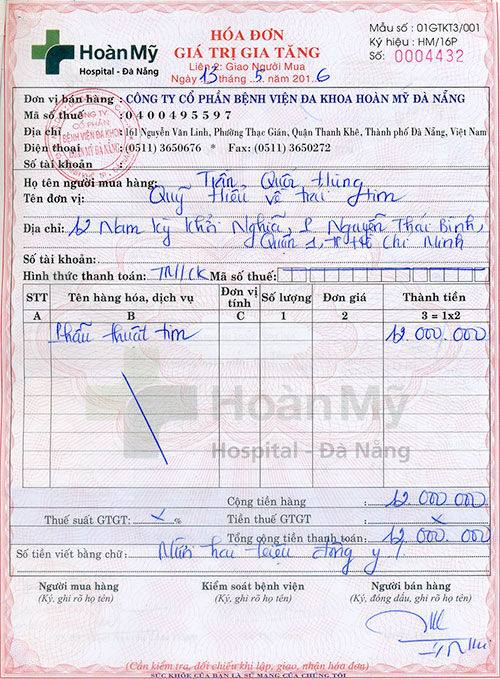 HÓA ĐƠN
GIÁ TRỊ GIA TĂNG
Liên 2: Giao Người Mua
Ngày 13 tháng 5 năm 2016
Mẫu số : 01GTKT3/001
Ký hiệu : HM/16P
Số: 0004432
Hoàn Mỹ
Hospital - Đà Nẵng
Đơn vị bán hàng : CÔNG TY CỔ PHẦN BỆNH VIỆN ĐA KHOA HOÀN MỸ ĐÀ NẴNG
Mã số thuế : 0400495597
Địa chỉ : 161 Nguyễn Văn Linh, Phường Thạc Gián, Quận Thanh Khê, Thành phố Đà Nẵng, Việt Nam
Điện thoại : (0511) 3650676 * Fax: (0511) 3650272
Số tài khoản :
CÔNG TY
CỔ PHẦN
BỆNH VIỆN ĐA KHOA
HOÀN MỸ ĐÀ NẴNG
Họ tên người mua hàng: Trần Quốc Hùng
Tên đơn vị: Quỹ Hiểu về trái tim
Địa chỉ: 12 Nam Kỳ Khởi Nghĩa, P Nguyễn Thái Bình,
Quận 1, TP Hồ Chí Minh
Số tài khoản:
Hình thức thanh toán: TM/CK Mã số thuế:
STT Tên hàng hóa, dịch vụ Đơn vị tính Số lượng Đơn giá Thành tiền
A B C 1 2 3 = 1x2
Phẫu thuật tim 12.000.000
Hoàn Mỹ
Hospital - Đà Nẵng
Cộng tiền hàng : 12 000 000
Thuế suất GTGT: x % Tiền thuế GTGT : x
Tổng cộng tiền thanh toán: 12 000 000
Số tiền viết bằng chữ: Mười hai triệu đồng y /
Người mua hàng Kiểm soát bệnh viện Người bán hàng
(Ký, ghi rõ họ tên) (Ký, ghi rõ họ tên) (Ký, đóng dấu, ghi rõ họ tên)
(Cần kiểm tra, đối chiếu khi lập, giao, nhận hóa đơn)
SỨC KHỎE CỦA BẠN LÀ SỨ MẠNG CỦA CHÚNG TÔI